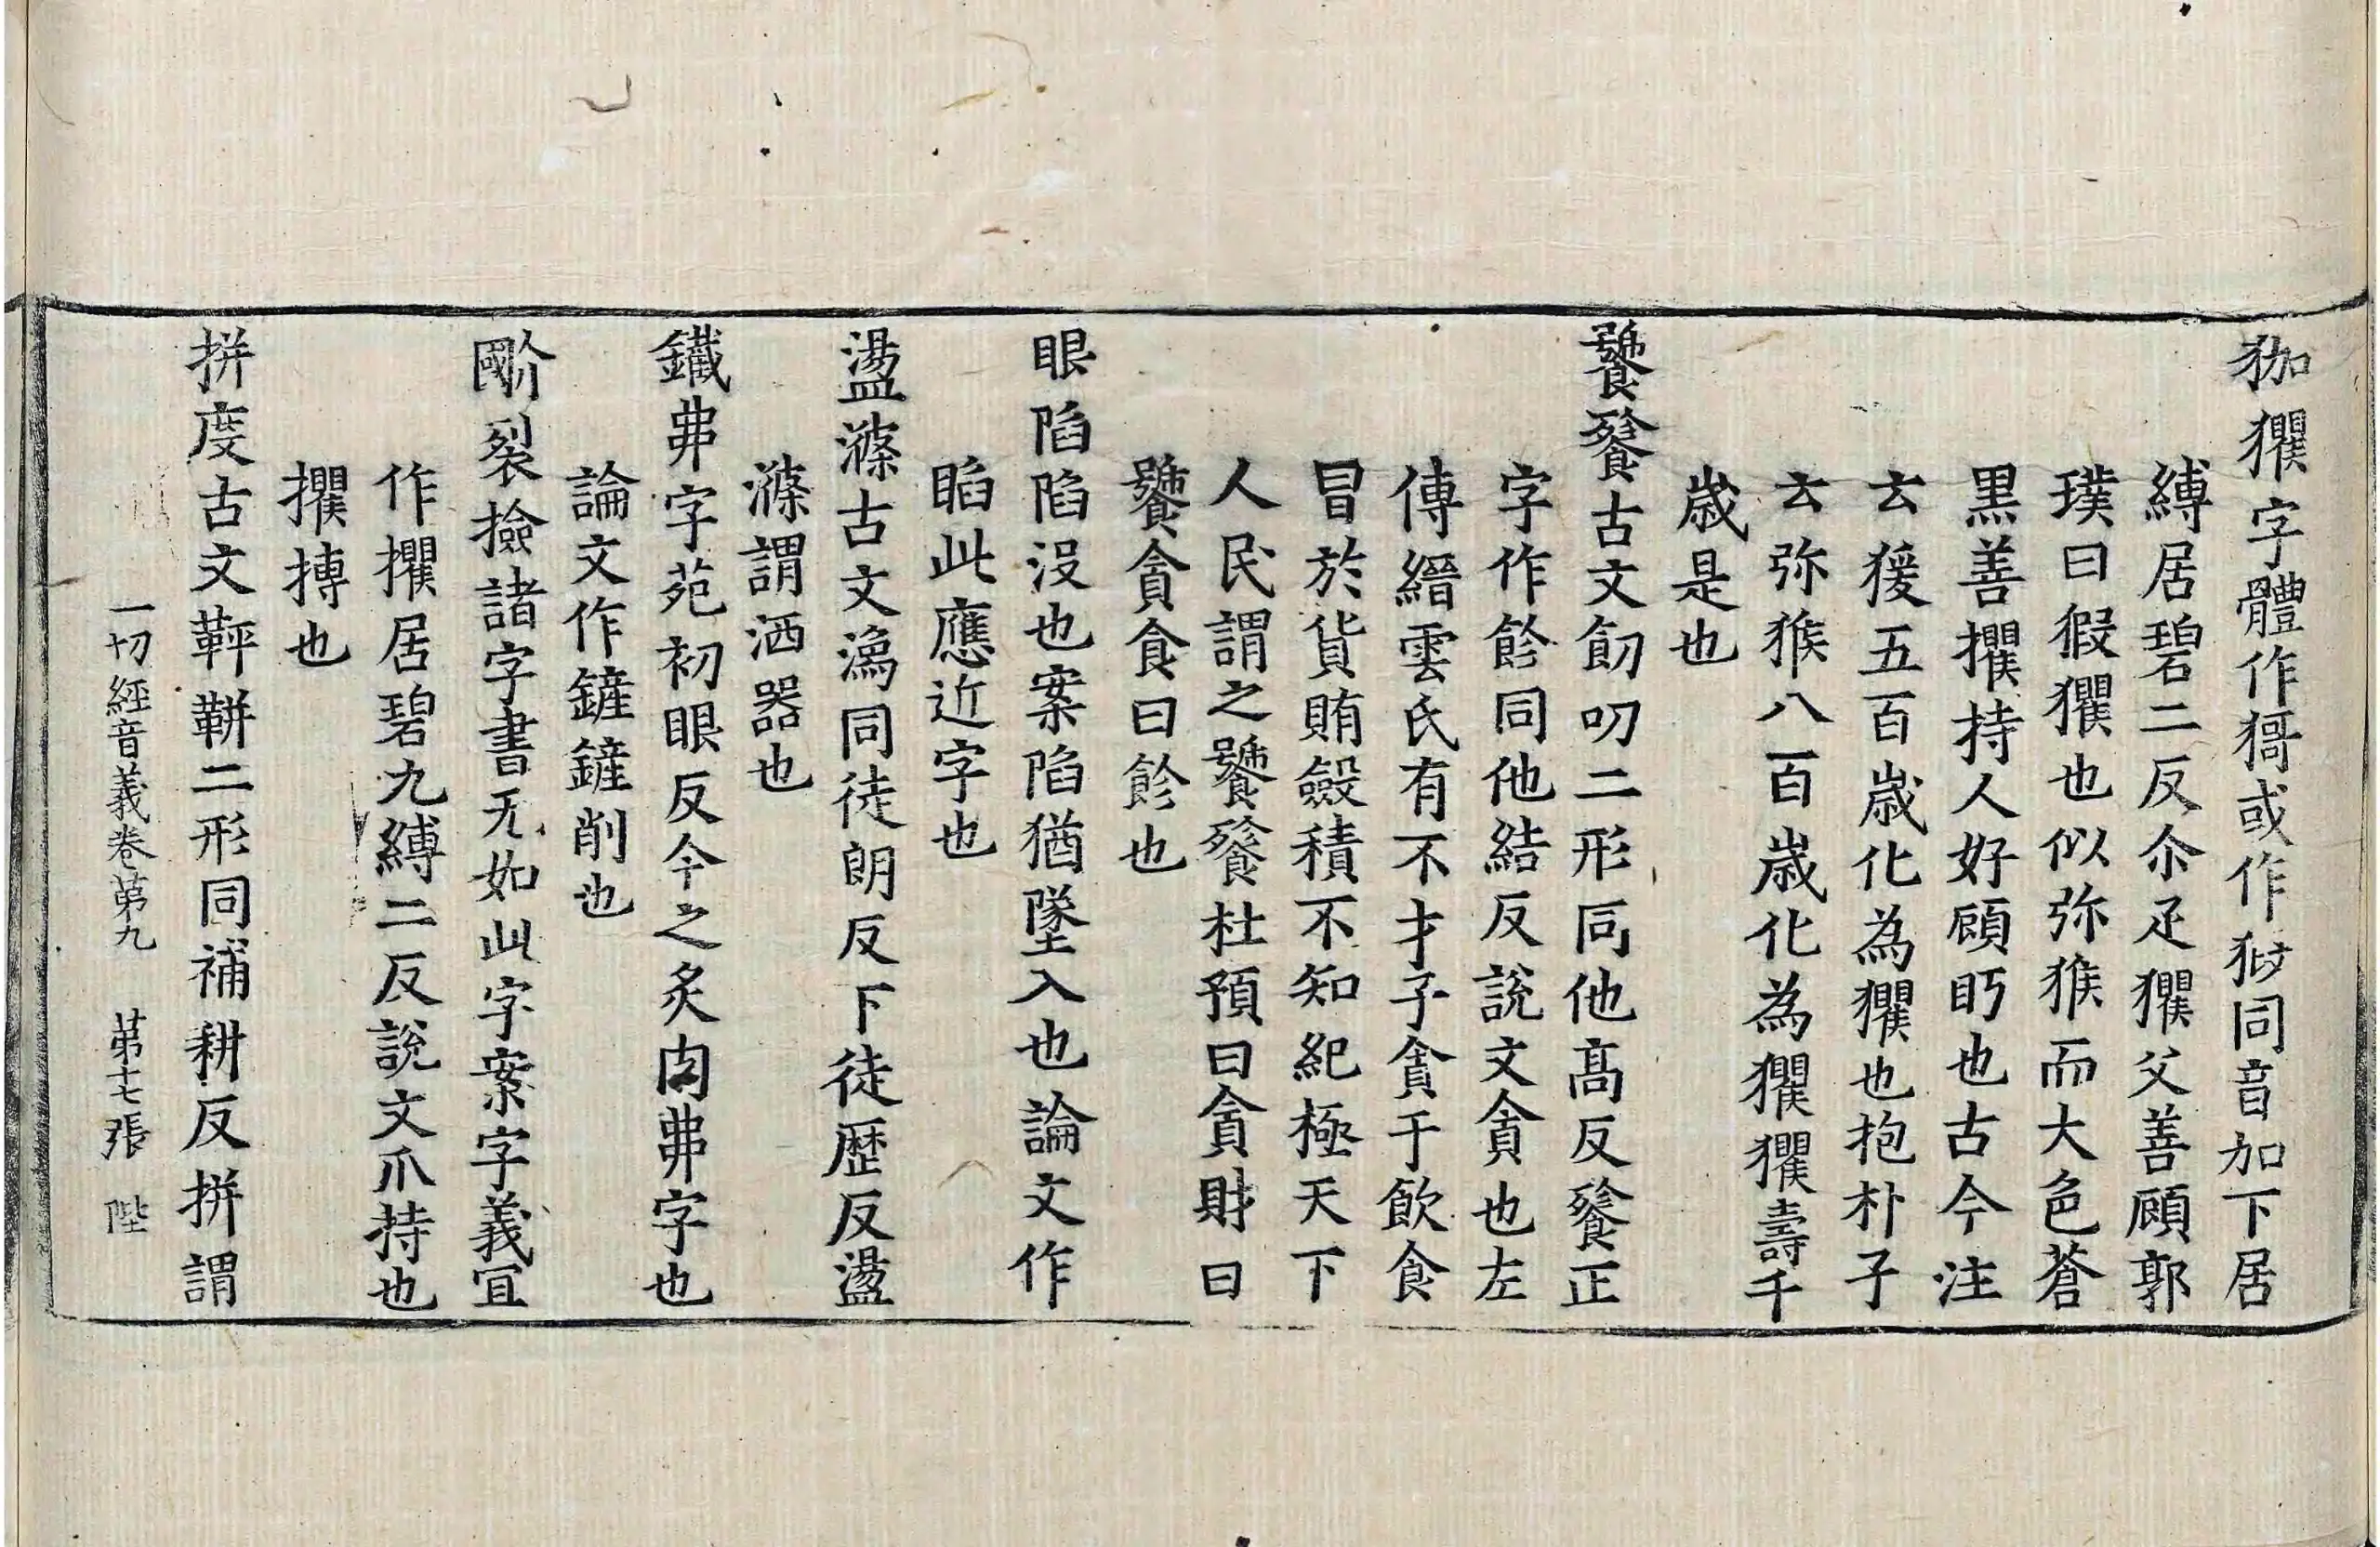 狐玃字體作𤠙或作㹢同音加下居
縛居碧二反尒疋玃父善顧郭
璞曰猳玃也似弥猴而大色蒼
黒善攫持人好顧眄也古今注
云猨五百歳化為玃也抱朴子
云弥猴八百歳化為玃玃壽千
歳是也
饕餮古文飣叨二形同他髙反餮正
字作飻同他結反說文貪也左
傳縉雲氏有不才子貪于飲食
冒於貨賄斂積不知紀極天下
人民謂之饕餮杜預曰貪財曰
饕貪食曰飻也
眼陷陷没也案陷猶墜入也論文作
䐄此應近字也
盪滌古文潒同徒朗反下徒歴反盪
滌謂洒器也
鐵弗字苑初眼反今之炙肉弗字也
論文作鏟鏟削也
裂撿諸字書无如此字案字義宜
作攫居碧九縛二反說文爪持也
攫搏也
拼度古文䩱䪒二形同補耕反拼謂
一切經音義卷第九 第十七張 陛